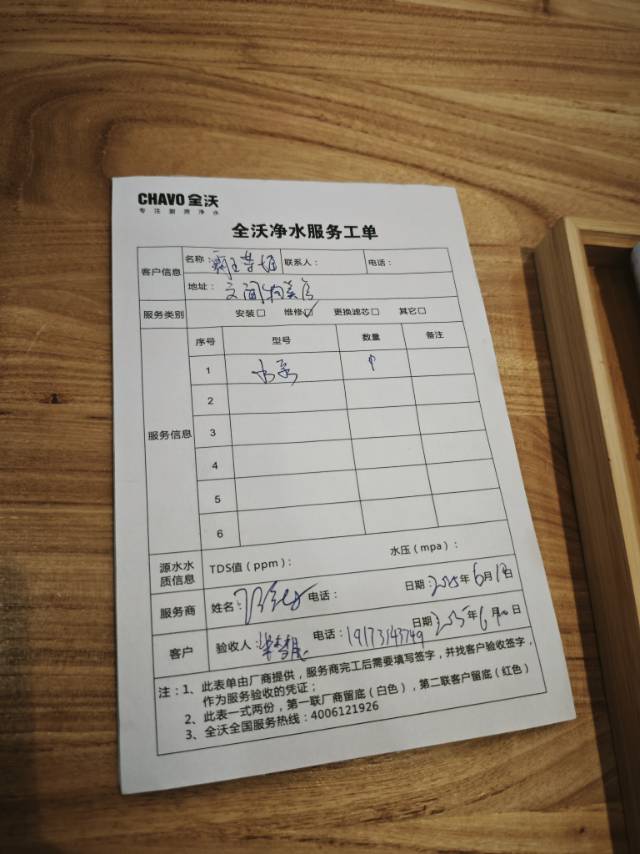 CHAVO 全沃
专注厨房净水
全沃净水服务工单
客户信息 名称： 联系人： 电话：
地址：
服务类别 安装□ 维修☑ 更换滤芯□ 其它□
服务信息 序号 型号 数量 备注
1
2
3
4
5
6
源水水质信息 TDS值（ppm）： 水压（mpa）：
服务商 姓名： 电话： 日期：2025年6月 日
客户 验收人： 电话：19173143749 日期2025年6月 日
注：1、此表单由厂商提供，服务商完工后需要填写签字，并找客户验收签字，
作为服务验收的凭证；
2、此表一式两份，第一联厂商留底（白色），第二联客户留底（红色）
3、全沃全国服务热线：4006121926